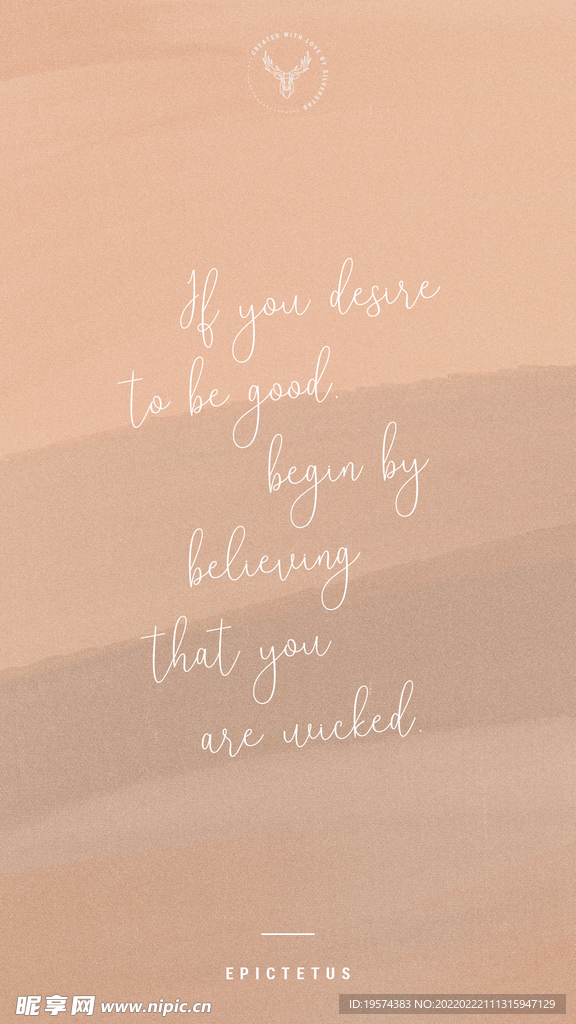 CREATED WITH LOVE BY SILVERSTAG
If you desire
to be good.
begin by
believing
that you
are wicked.
EPICTETUS
昵享网 www.nipic.cn
ID:19574383 NO:20220222111315947129